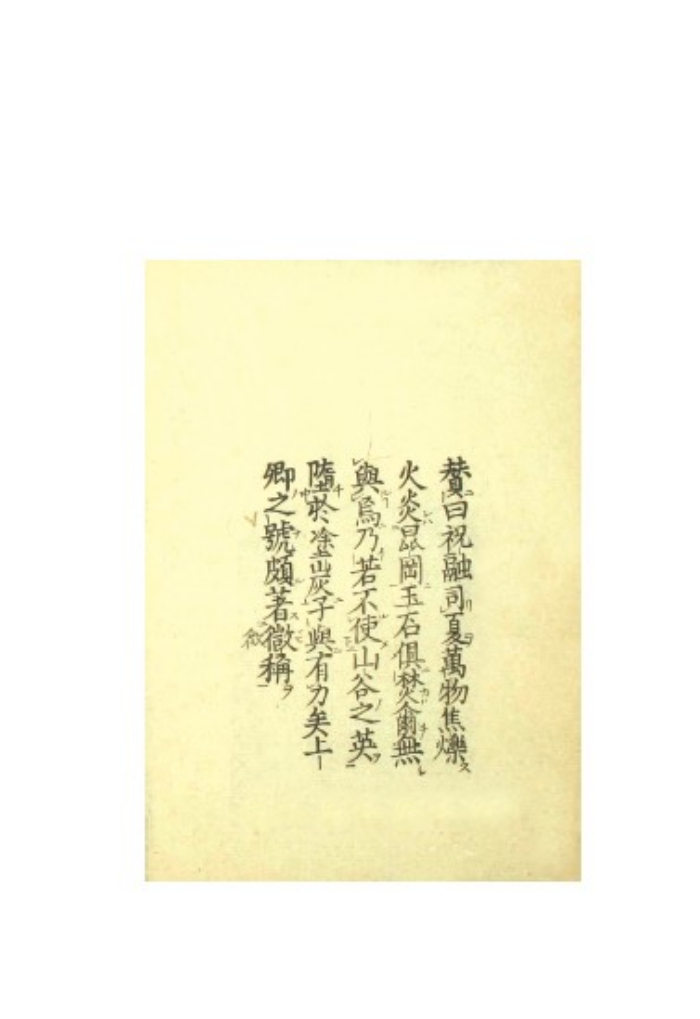 賛曰祝融司夏萬物焦爍
火炎昆岡玉石俱焚爾無
與焉乃若不使山谷之英
墮於塗炭子與有力矣上
卿之號頗著徵稱
微